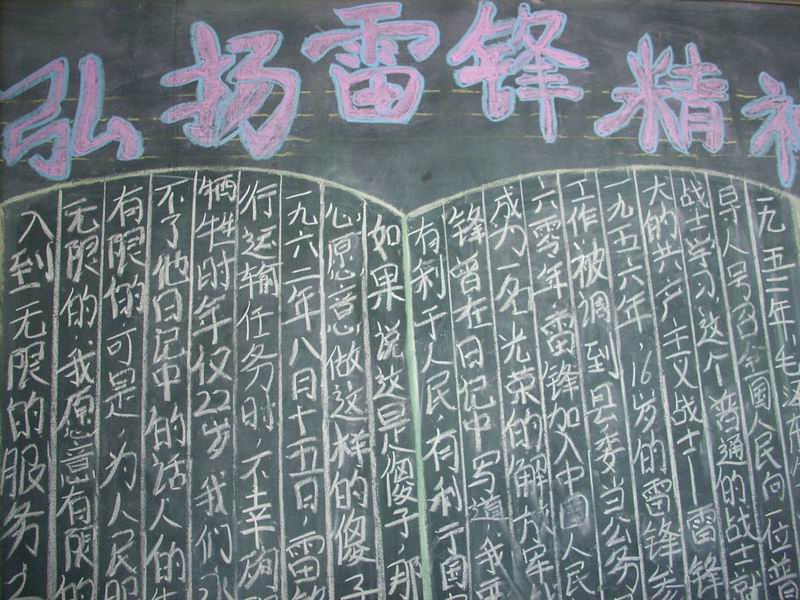 弘扬雷锋精神
九五三年,毛泽东
导人号召全国人民向一位普
战士学习,这个普通的战士就
大的共产主义战士——雷锋
一九五六年,16岁的雷锋参
工作被调到县委当公务
六零年,雷锋加入中国人民
成为一名光荣的解方军战
锋曾在日记中写道,我要
有利于人民,有利于国
如果说这是傻子,那
心愿意做这样的傻子
一九六二年八月十五日,雷
行运输任务时,不幸殉
牺牲时年仅22岁,我们永
不了他日记中的话人的生
有限的,可是,为人民服
无限的,我愿意有限的
入到无限的服务之